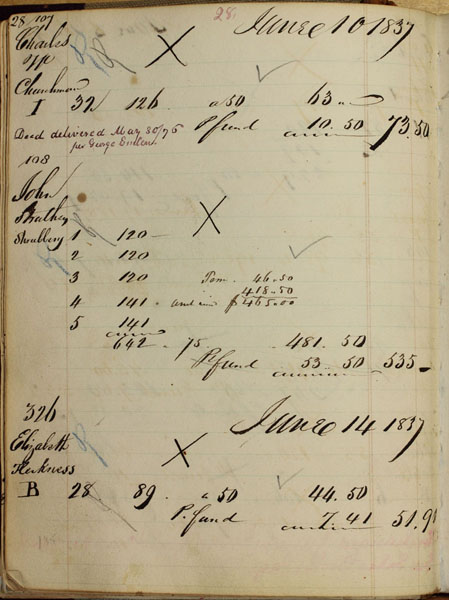 28/107 28. June 10 1837
Charles
Churchman
I 32 126 a 50 63 "
Deed delivered May 30/76 P. fund 10. 50 73.50
per George
108
John
Shrubbery 1 120
2 120
3 120 46.50
4 141 418.50
$465.00
5 141
642 . 75 481. 50
P. fund 53. 50 535
326 June 14 1837
Elizabeth
Harkness
B 28 89. a 50 44. 50
P. fund 7. 41 51.91